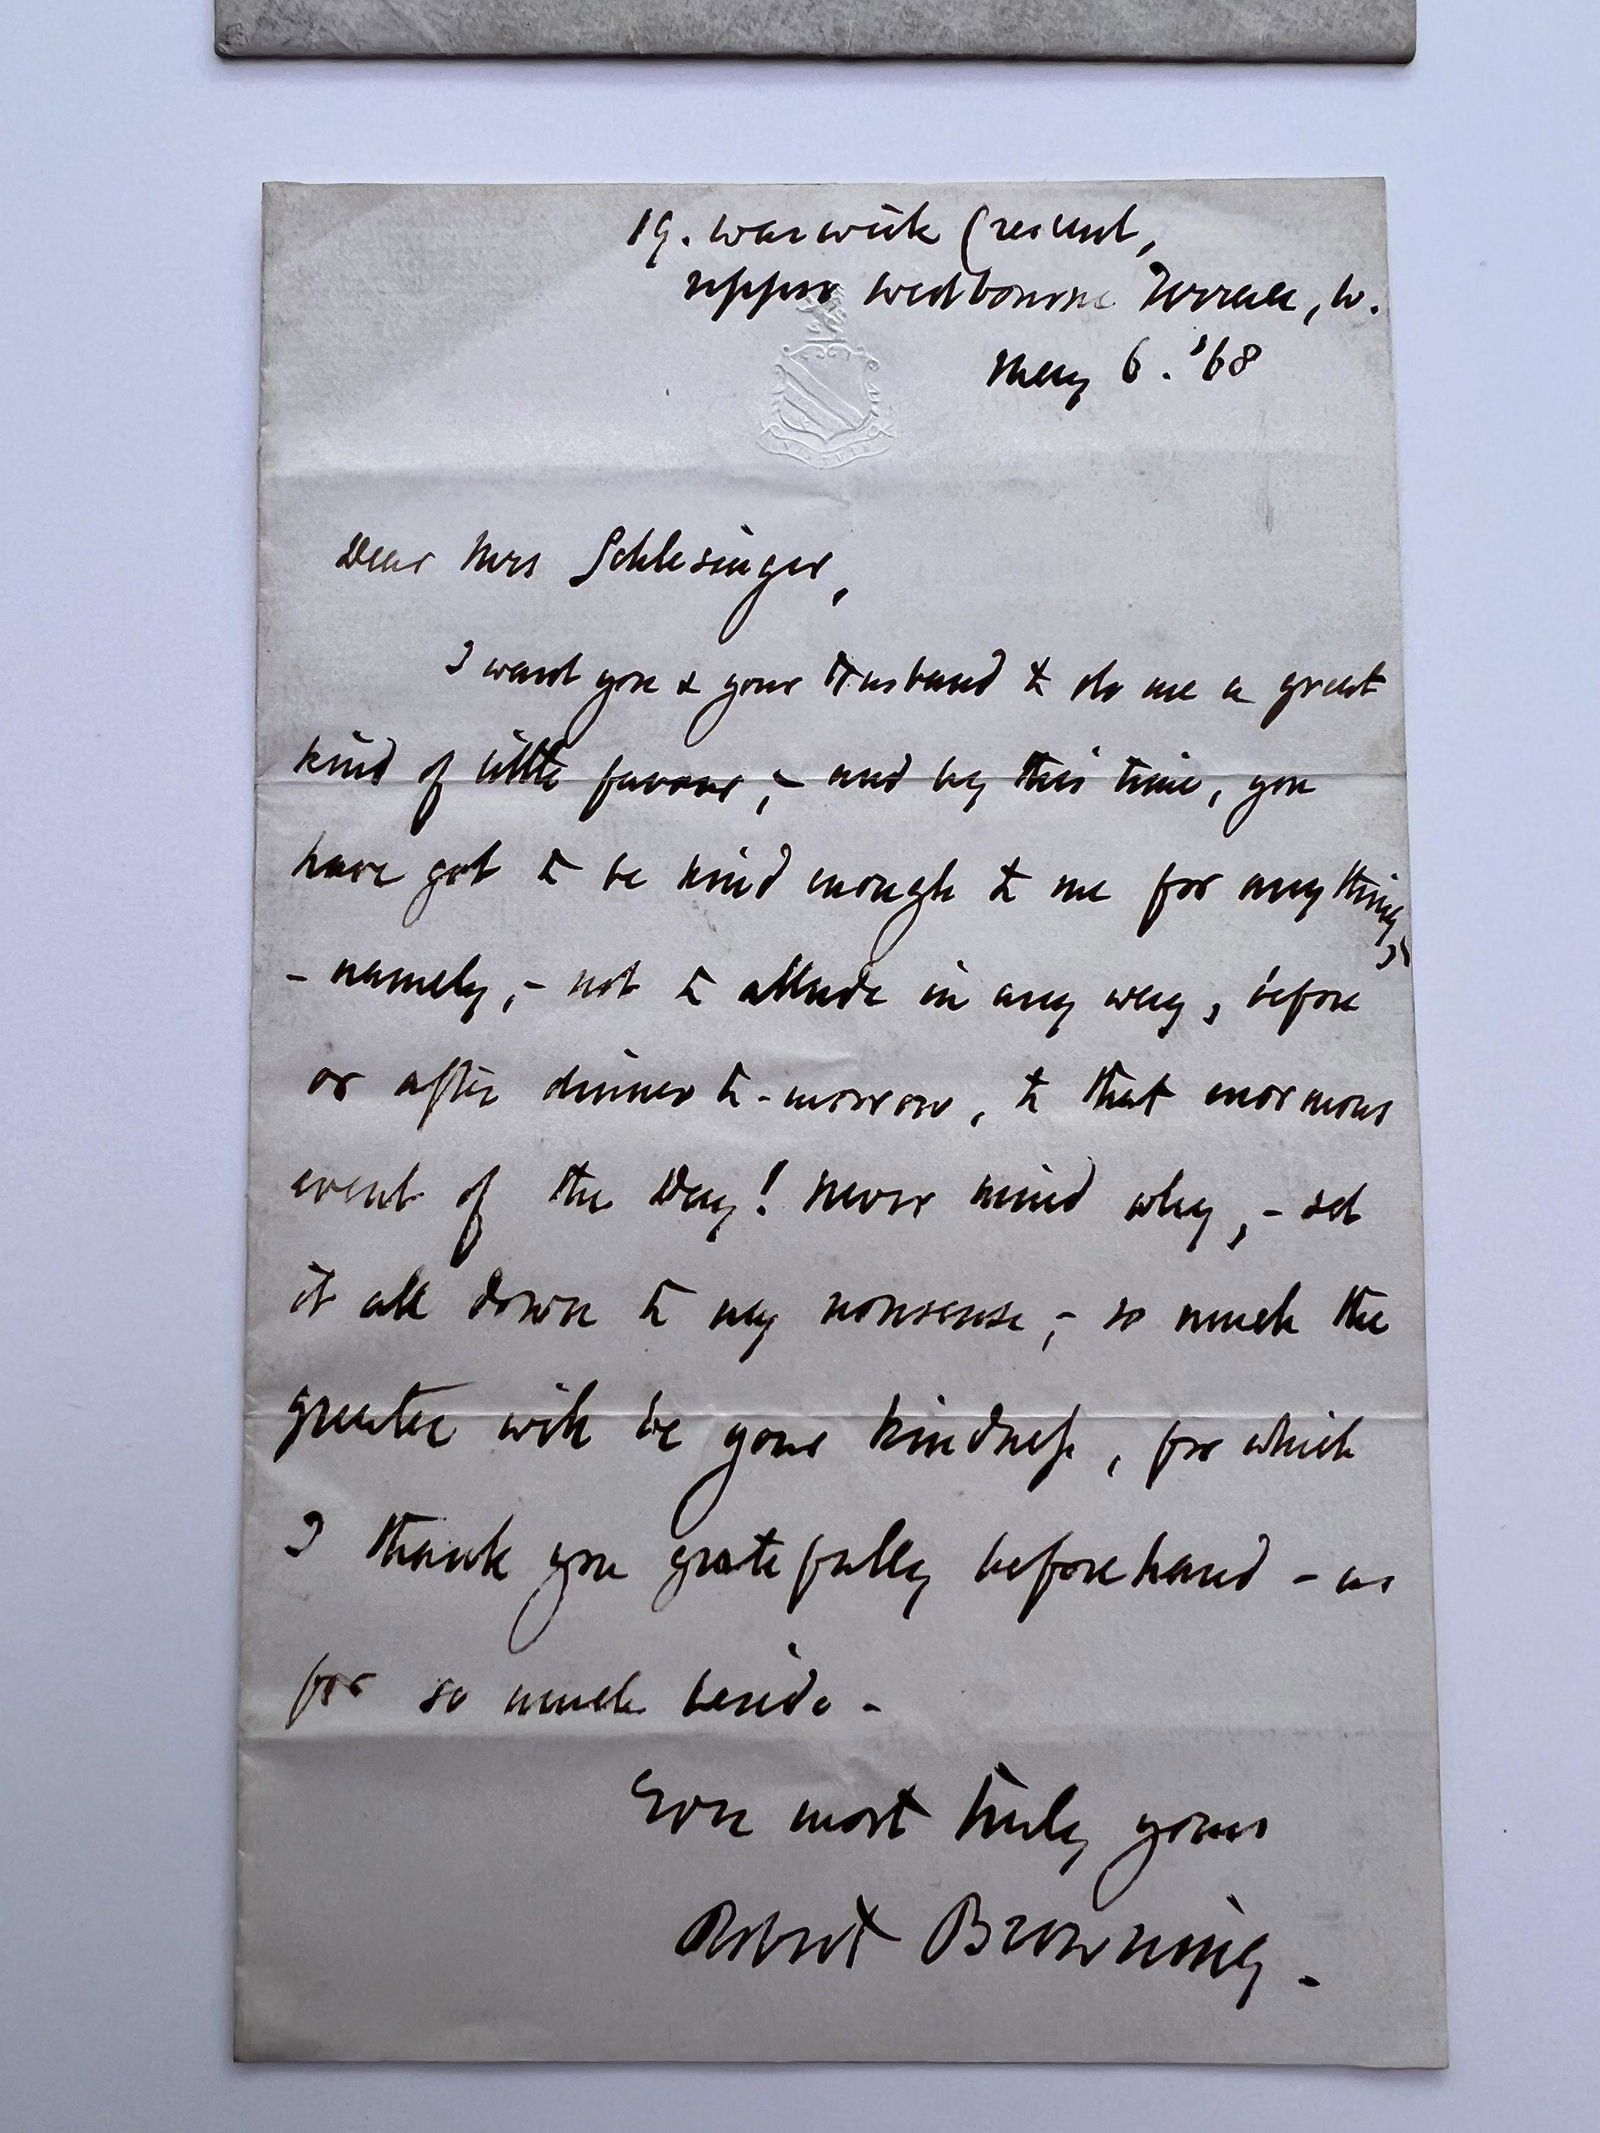 19. Warwick Crescent,
Upper Westbourne Terrace, W.
May 6. '68
Dear Mrs Schlesinger,
I want you & your Husband to do me a great
kind of little favour,- and by this time, you
have got to be kind enough to me for anything,
- namely,- not to allude in any way, before
or after dinner to-morrow, to that enormous
event of the Day! Never mind why,- set
it all down to my nonsense,- so much the
greater will be your kindness, for which
I thank you gratefully beforehand - as
for so much beside -
Ever most truly yours
Robert Browning.